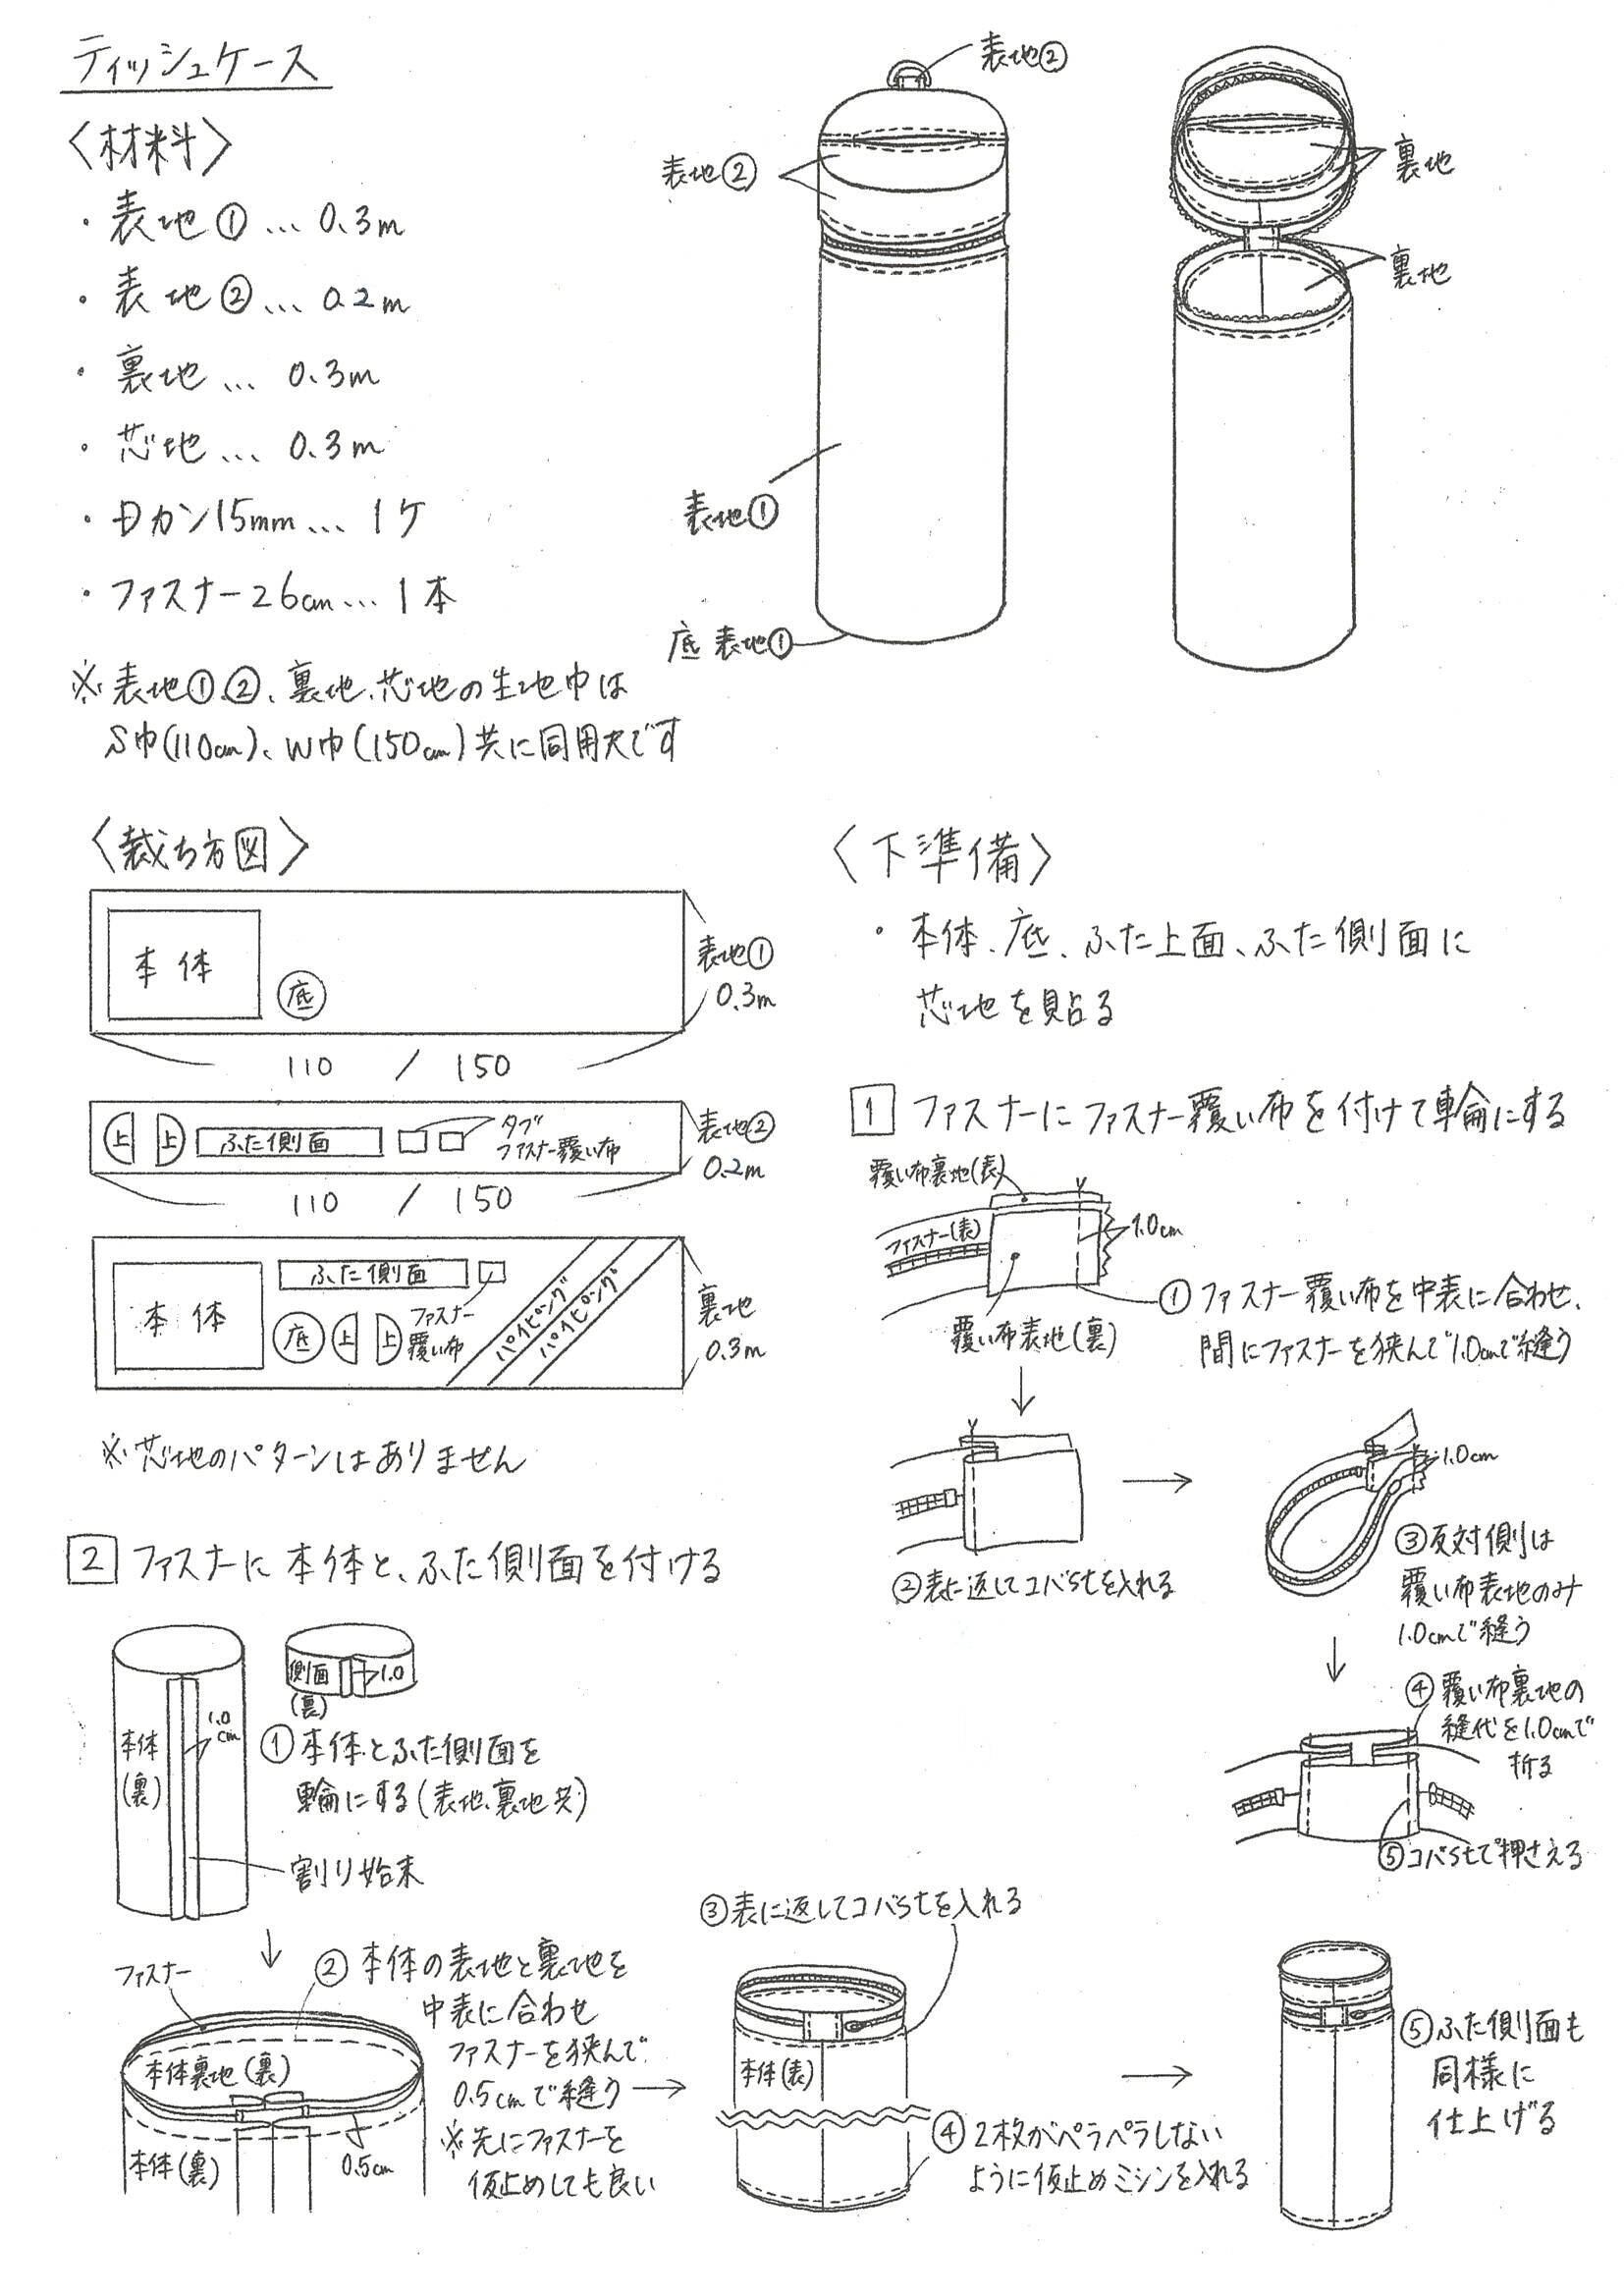 ティッシュケース
〈材料〉
・表地①…0.3m
・表地②…0.2m
・裏地…0.3m
・芯地…0.3m
・Dカン15mm…1ケ
・ファスナー26cm…1本
※表地①②、裏地、芯地の生地巾は
S巾(110cm)、W巾(150cm)共に同用尺です
表地②
表地②
表地①
底 表地①
裏地
裏地
〈裁ち方図〉
本体
底
表地①
0.3m
110 / 150
上
上
ふた側面
タブ
ファスナー覆い布
表地②
0.2m
110 / 150
本体
ふた側面
底
上
上
ファスナー
覆い布
パイピング
パイピング
裏地
0.3m
※芯地のパターンはありません
〈下準備〉
・本体、底、ふた上面、ふた側面に
芯地を貼る
1 ファスナーにファスナー覆い布を付けて輪にする
覆い布裏地(表)
ファスナー(表)
1.0cm
覆い布表地(裏)
①ファスナー覆い布を中表に合わせ、
間にファスナーを挟んで1.0cmで縫う
②表に返してコバstを入れる
1.0cm
③反対側は
覆い布表地のみ
1.0cmで縫う
④覆い布裏地の
縫代を1.0cmで
折る
⑤コバstで押さえる
2 ファスナーに本体と、ふた側面を付ける
本体
(裏)
1.0
cm
側面
(裏)
1.0
①本体とふた側面を
輪にする(表地、裏地共)
割り始末
ファスナー
②本体の表地と裏地を
中表に合わせ
ファスナーを挟んで
0.5cmで縫う
※先にファスナーを
仮止めしても良い
本体裏地(裏)
本体(裏)
0.5cm
③表に返してコバstを入れる
本体(表)
④2枚がペラペラしない
ように仮止めミシンを入れる
⑤ふた側面も
同様に
仕上げる